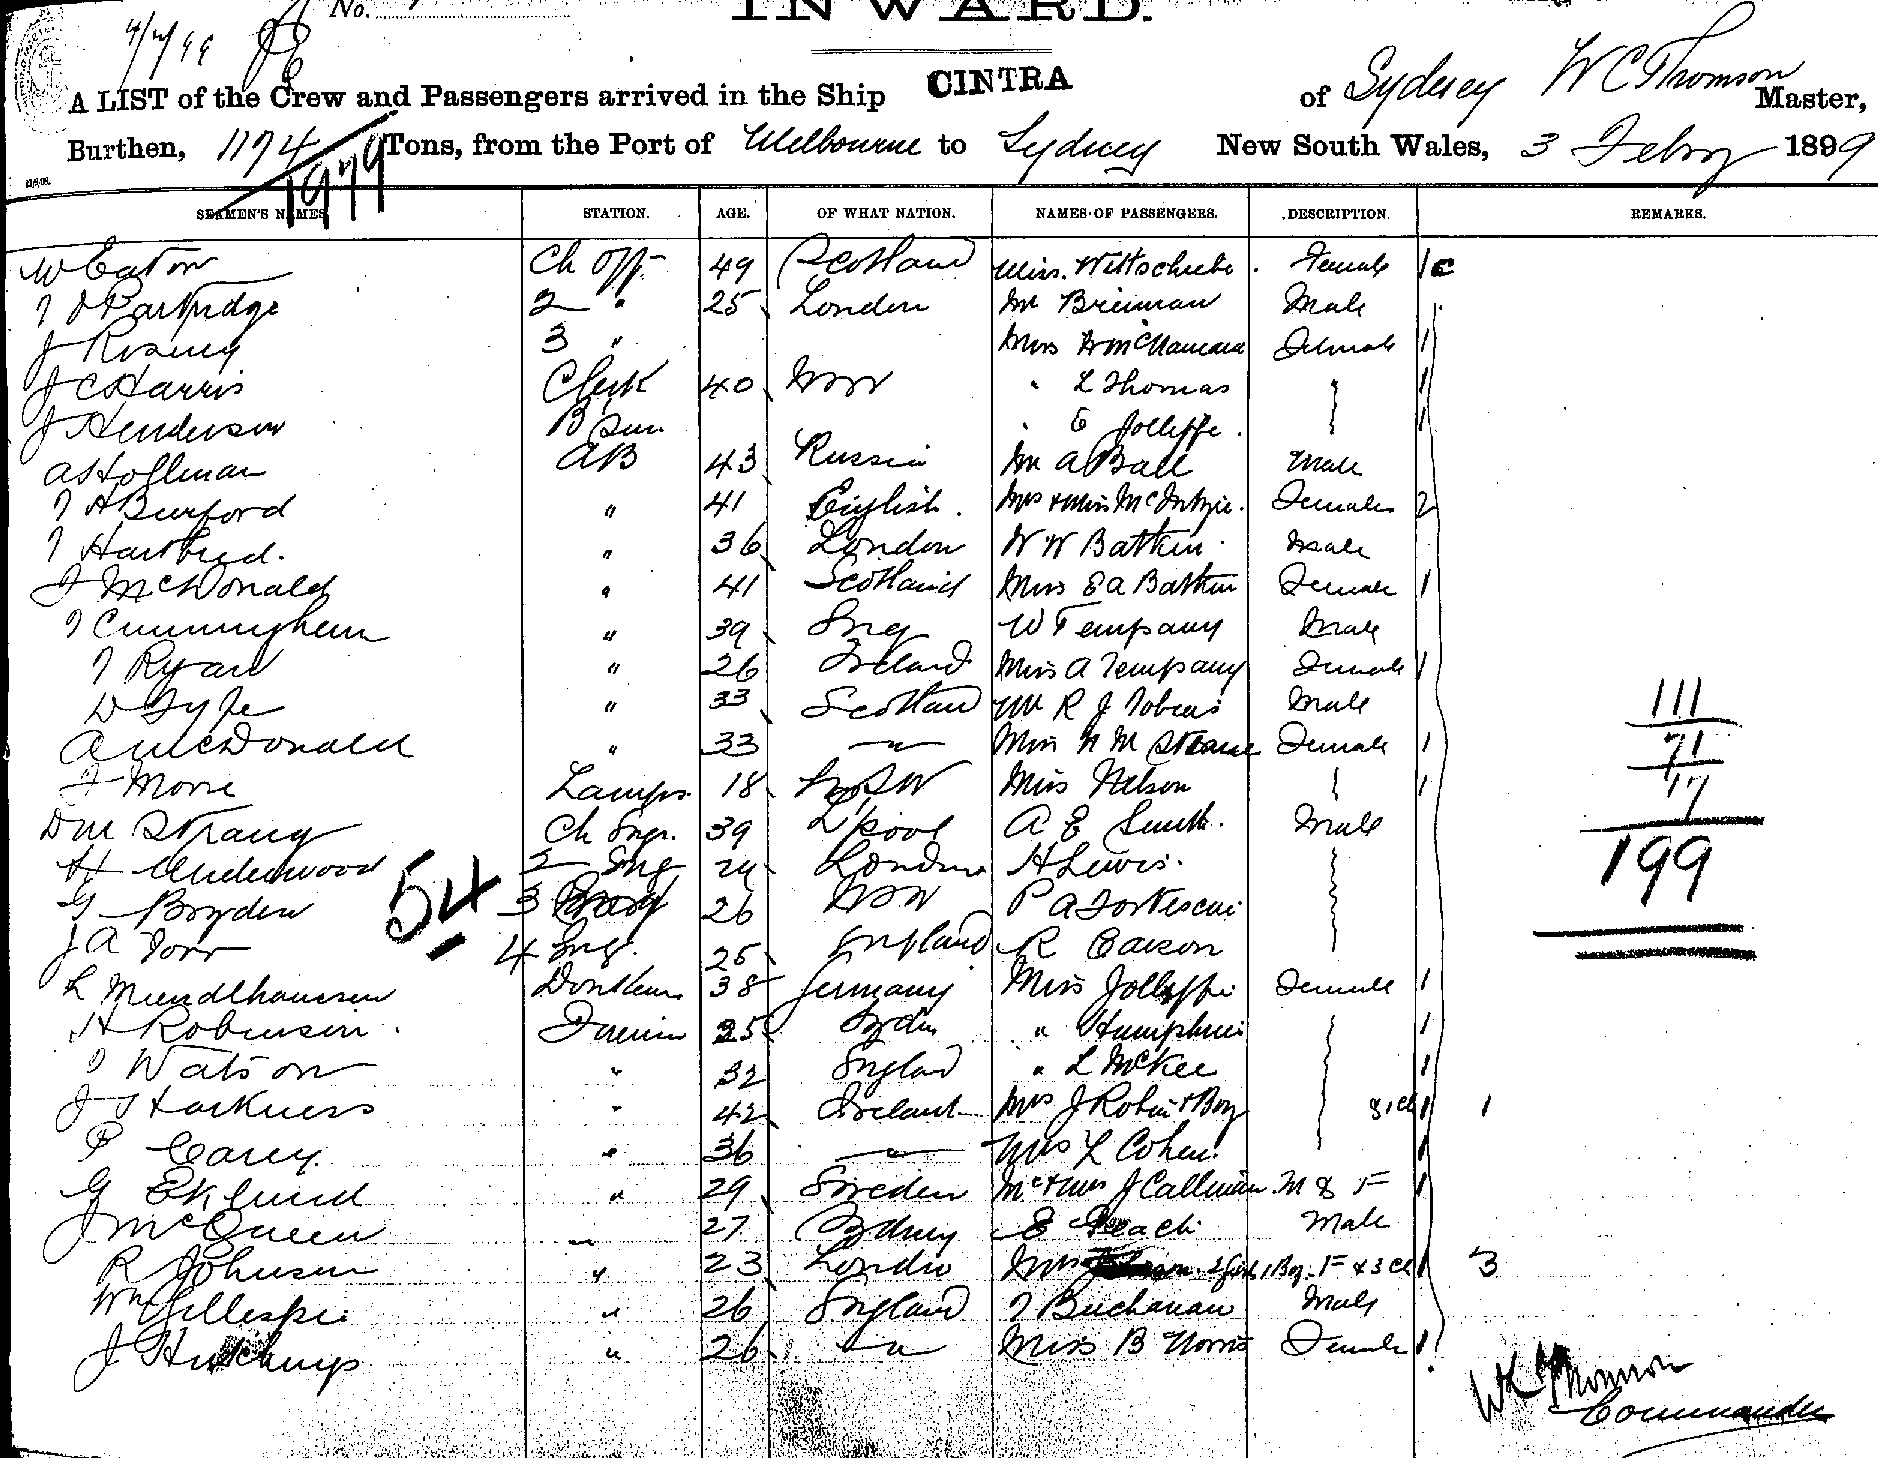 No.
INWARD.
4/2/99
A LIST of the Crew and Passengers arrived in the Ship CINTRA of Sydney W C Thomson Master,
Burthen, 1174 1979 Tons, from the Port of Melbourne to Sydney New South Wales, 3 Febry 1899
SEAMEN'S NAMES STATION. AGE. OF WHAT NATION. NAMES OF PASSENGERS. DESCRIPTION. REMARKS.
W Eaton Ch Off 49 Scotland Miss Female 1
Partridge 2 " 25 London Mr Brennan Male
J 3 " Miss McNamara Female 1
J C Harris Clerk 40 NSW " L Thomas 1
J Henderson B Sun " E Jolliffe. 1
A Hollman AB 43 Russia Mr A Ball Male
T A Burford " 41 English. Mrs & Miss McIntyre. Females 2
T " 36 London W W Batkin Male
J McDonald " 41 Scotland Miss E A Batkin Female 1
T Cunningham " 39 Eng W Tempany Male
T Ryan " 26 Ireland Miss A Tempany Female 1
D Fyfe " 33 Scotland Mr R J Tobias Male
A McDonald " 33 " Miss N M Female 1
J Lamps 18 NSW Miss Nelson 1
D M Strang Ch Engr. 39 L'pool A E Smith. Male
H Underwood 2 Eng London H Lewis.
G Bryden 3 26 NSW P A Fortescue
J A Torr 4 Eng. 25 England R Carson
L Mundlhaussen Donkeyn 38 Germany Miss Jolliffe Female 1
H Robinson Firemn 25 Sydn " Humphries 1
T Watson " 32 England " L McKee 1
J Harkness " 42 Ireland Mrs J Robin & Boy 1 1
P Carey " 36 " Mrs L Cohen 1
G Eklund " 29 Sweden Mr & Mrs J Callinan M & F 1
J McQueen " 27 Sydney E Peach Male
R Johnson " 23 London Mrs 2 Girls 1 Boy F & 3 Ch 1 3
Wm Gillespie " 26 England T Buchanan Male
J " 26 " Miss B Norris Female 1
54
111
71
17
199
W C Thomson
Commander